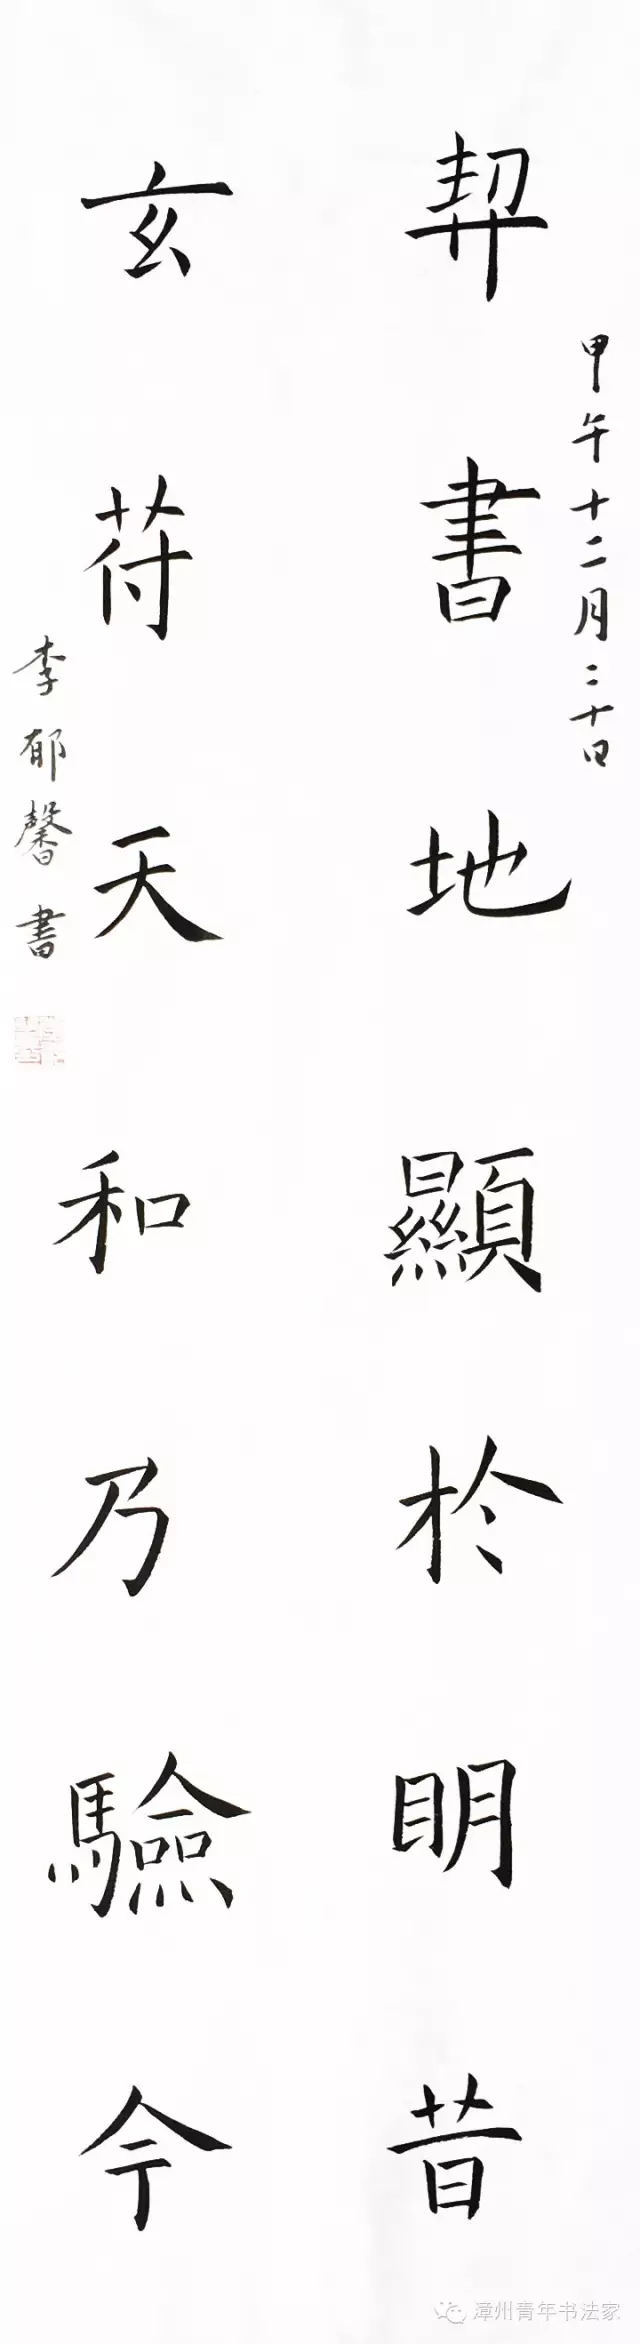 契書地顯於明昔
甲午十二月二十日
玄苻天和乃驗今
李郁馨書
漳州青年书法家